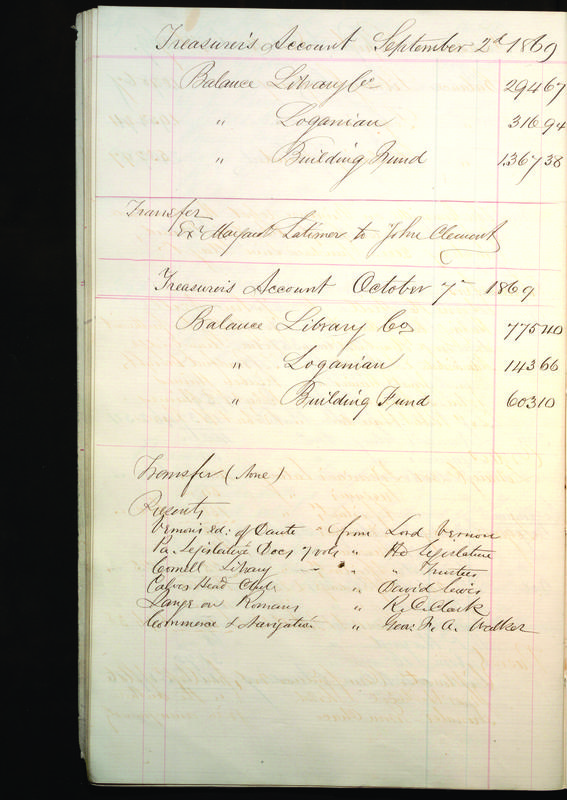 Treasurer's Account September 2d 1869
Balance Library Co 29467
" Loganian 31694
" Building Fund 136738
Transfer
Exr Margaret Latimer to John Clement
Treasurer's Account October 7th 1869
Balance Library Co 77540
" Loganian 14366
" Building Fund 60310
Transfer (None)
Presents
Vernon's ed: of Dante " from Lord Vernon
Pa. Legislative Docs 7 vols " the Legislature
Cornell Library " " Trustees
Calves Head Club " David Lewis
Lange on Romans " R. C. Clark
Commerce & Navigation " F. A. Walker